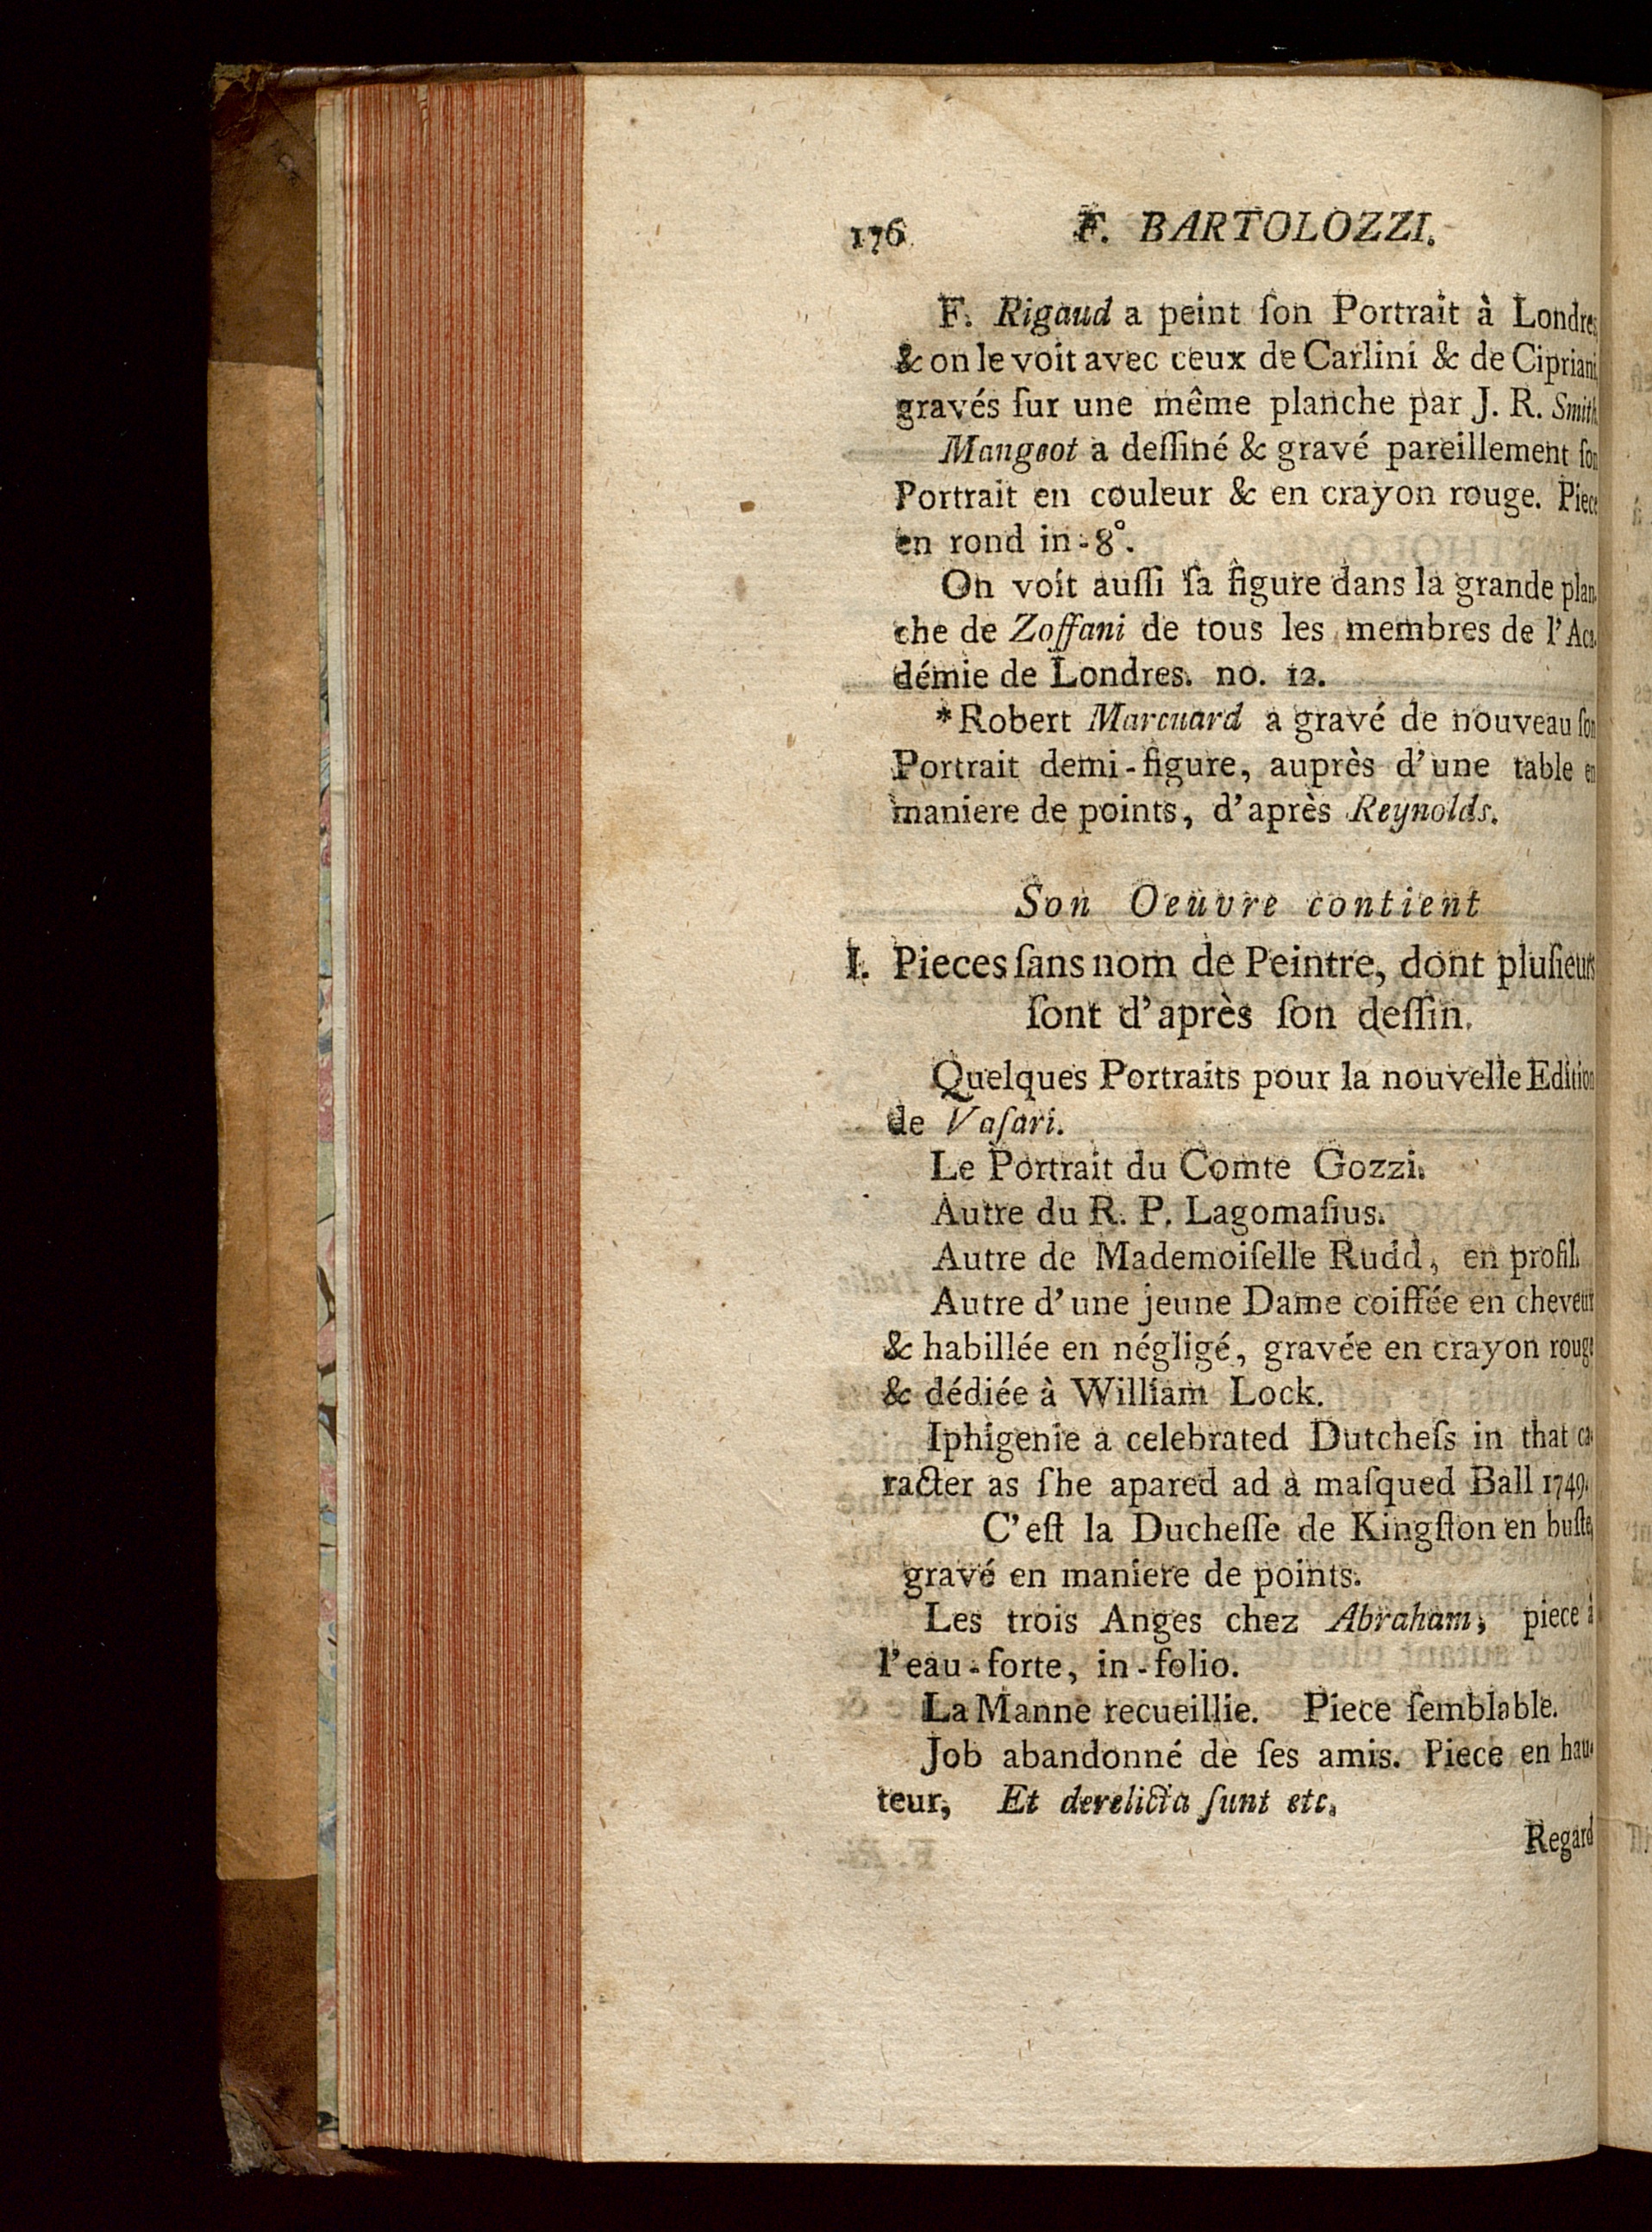 176 F. BARTOLOZZI.
F. Rigaud a peint ſon Portrait à Londres
& on le voit avec ceux de Carlini & de Cipriani,
gravés ſur une même planche par J. R. Smith.
Mangeot a deſſiné & gravé pareillement ſon
Portrait en couleur & en crayon rouge. Piece
en rond in-8°.
On voit auſſi ſa figure dans la grande plan-
che de Zoffani de tous les membres de l'Aca-
démie de Londres. no. 12.
*Robert Marcuard a gravé de nouveau ſon
Portrait demi-figure, auprès d'une table en
maniere de points, d'après Reynolds.
Son Oeuvre contient
I. Pieces ſans nom de Peintre, dont pluſieurs
ſont d'après ſon deſſin.
Quelques Portraits pour la nouvelle Edition
de Vaſari.
Le Portrait du Comte Gozzi.
Autre du R. P. Lagomaſius.
Autre de Mademoiſelle Rudd, en profil.
Autre d'une jeune Dame coiffée en cheveux
& habillée en négligé, gravée en crayon rouge
& dédiée à William Lock.
Iphigenie a celebrated Dutcheſs in that ca-
racter as ſhe apared ad a maſqued Ball 1749.
C'eſt la Ducheſſe de Kingſton en buſte,
gravé en maniere de points.
Les trois Anges chez Abraham, piece à
l'eau-forte, in-folio.
La Manne recueillie. Piece ſemblable.
Job abandonné de ſes amis. Piece en hau-
teur, Et derelicta ſunt etc.
Regard